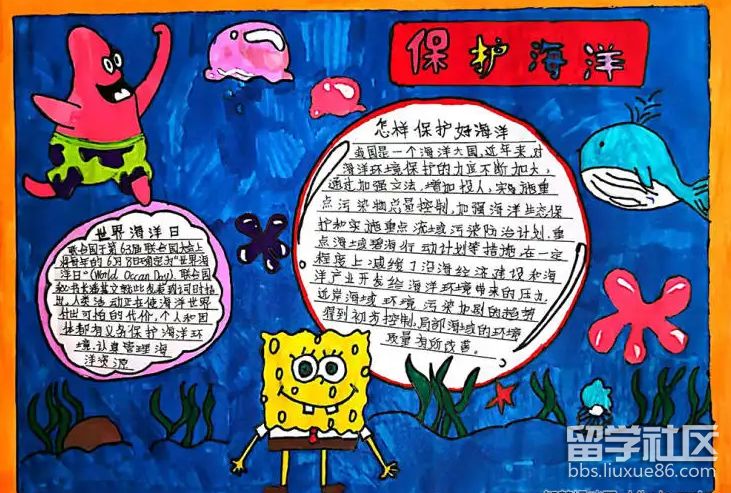 保护海洋
怎样保护好海洋
我国是一个海洋大国,近年来,对
海洋环境保护的力度不断加大,
通过加强立法,增加投人,实施重
点污染物总量控制,加强海洋生态保
护和实施重点流域污染防治计划,重
点海域碧海行动计划等措施,在一定
程度上减缓了沿海经济建设和海
洋产业开发给海洋环境带来的压力,
近岸海域环境污染加剧的趋势
得到初步控制,局部海域的环境
质量有所改善。
世界海洋日
联合国于第63届联合国大会上
将每年的6月8日确定为"世界海
洋日"(World Ocean Day).联合国
秘书长潘基文就此发表致词时指
出,人类活动正在使海洋世界
付出可怕的代价,个人和团
体都有义务保护海洋环
境,认真管理海
洋资源
留学社区
bbs.liuxue86.com